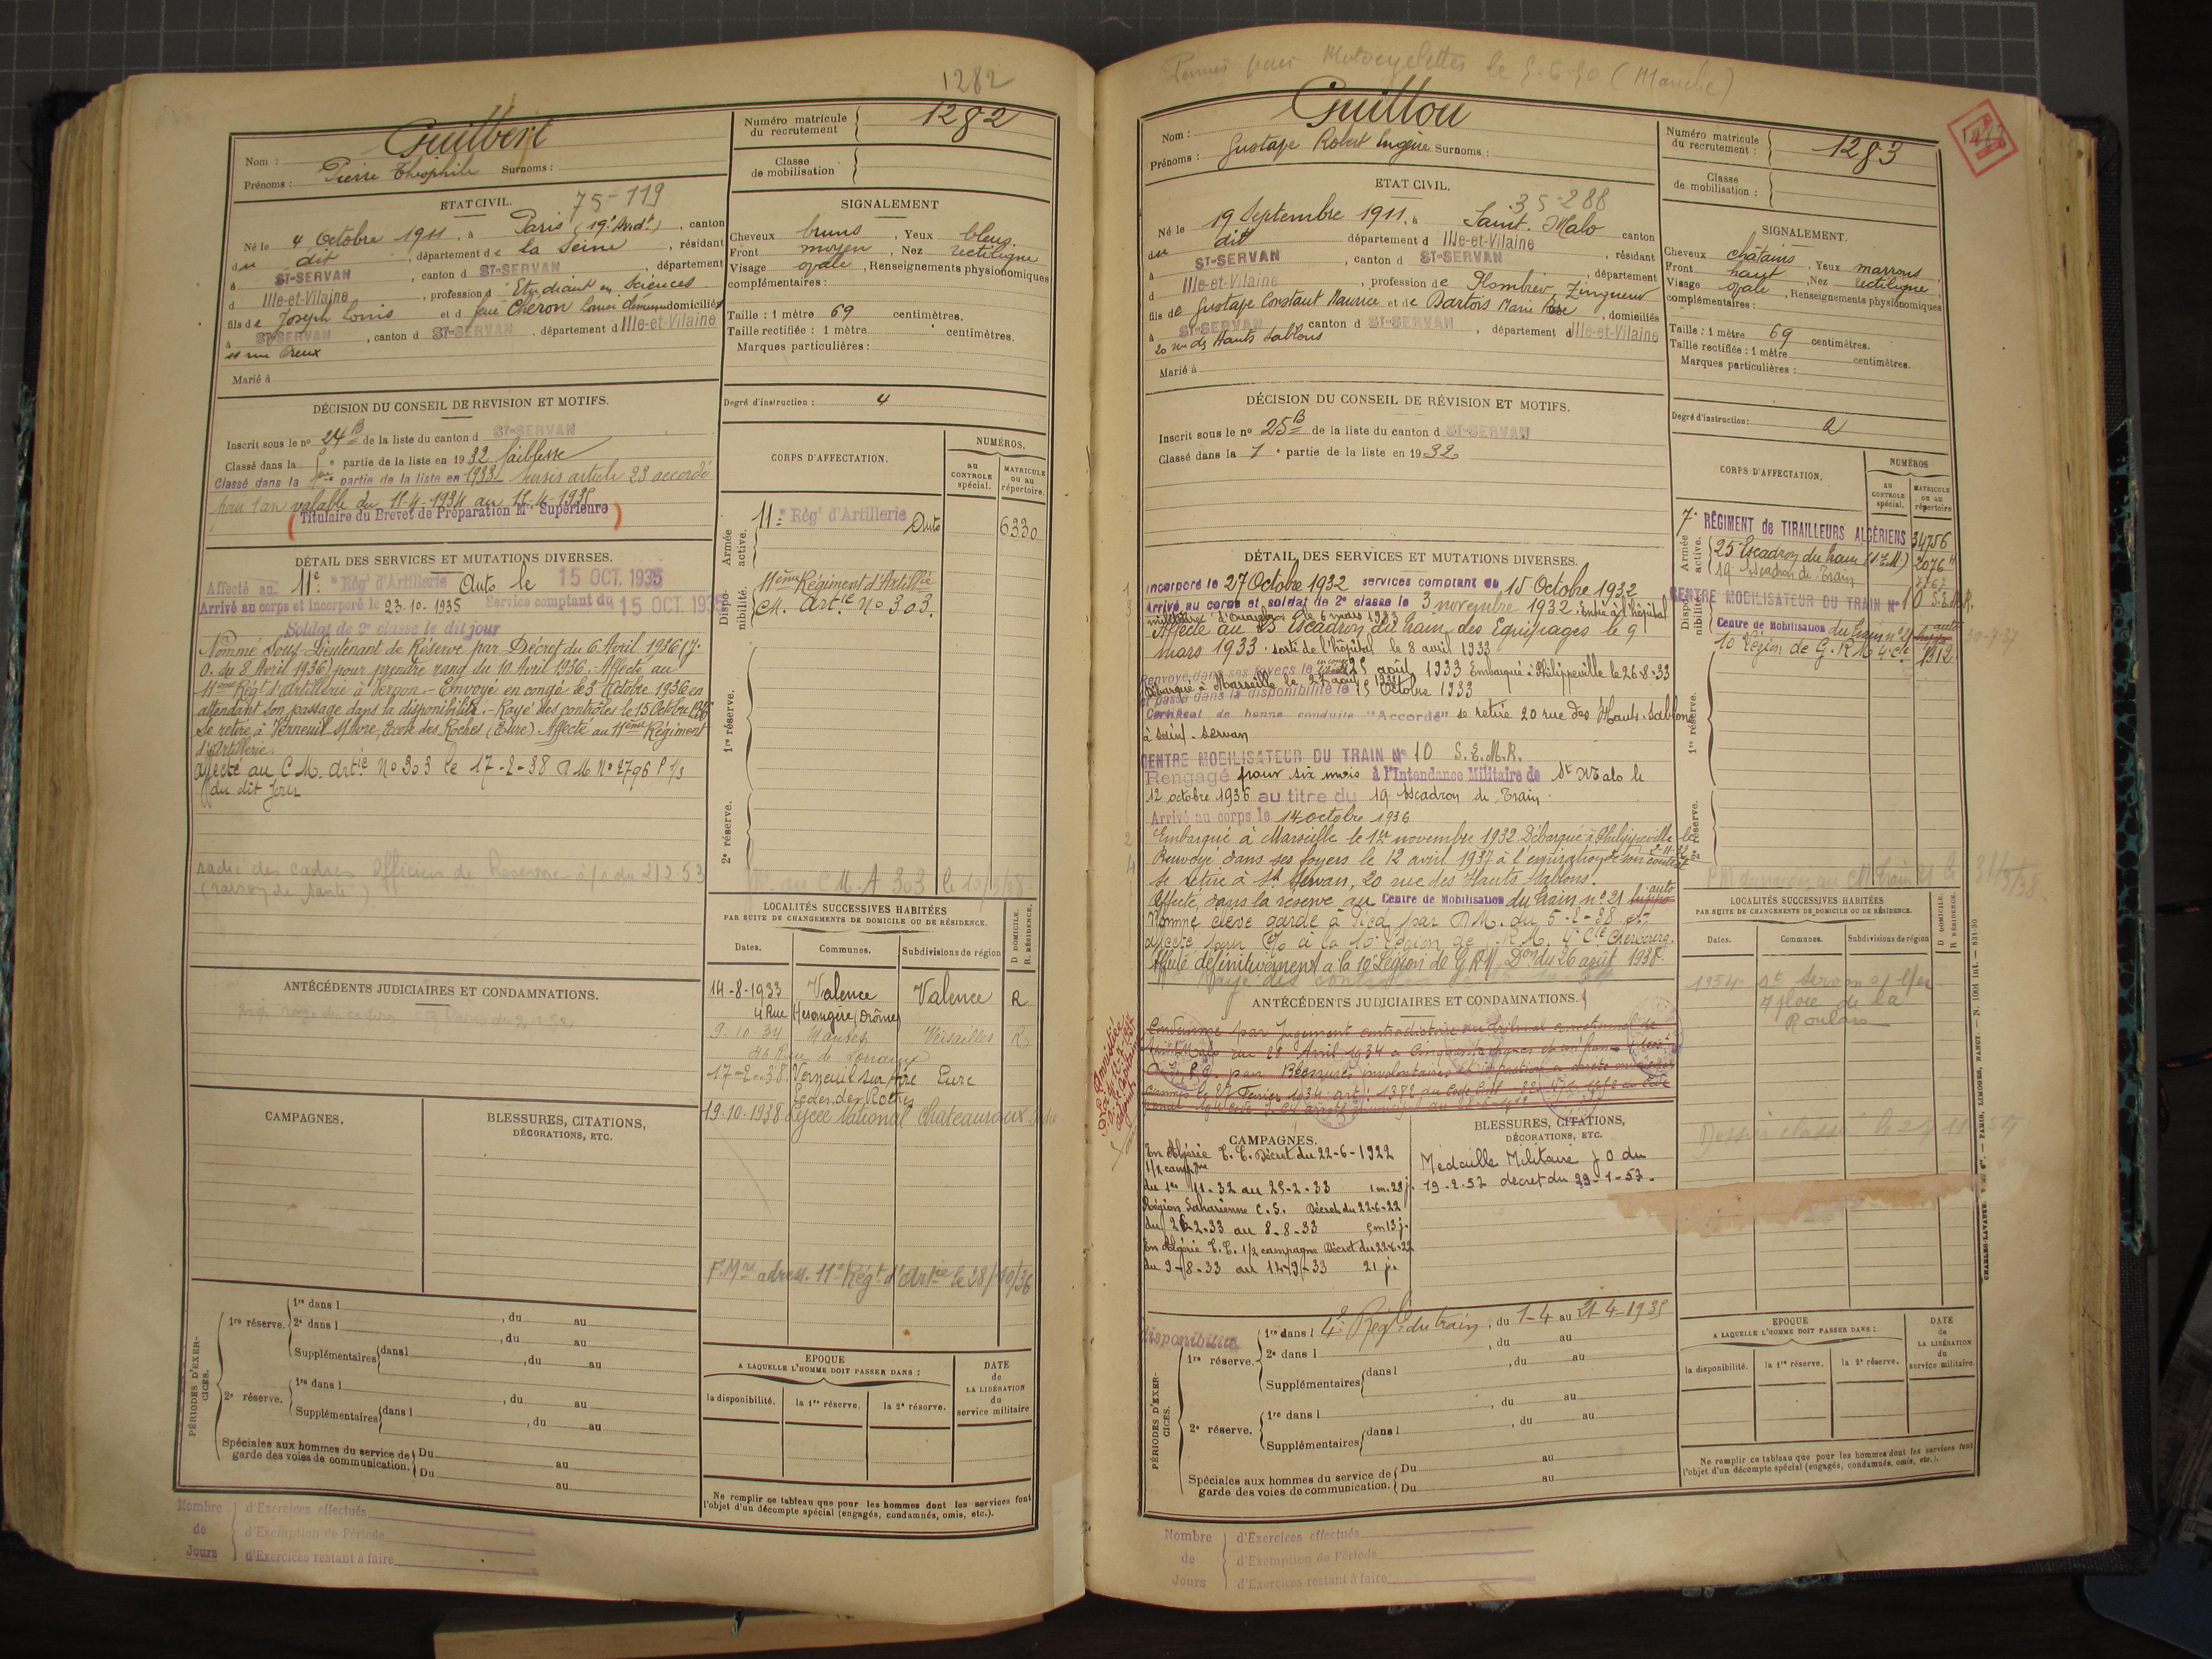 1282
Guilbert
Nom :
Prénoms : Pierre Théophile Surnoms :
Numéro matricule du recrutement 1282
Classe de mobilisation
ETAT CIVIL. 75-119
Né le 4 Octobre 1911, à Paris (19e Arrdt), canton
du dit, département de la Seine, résidant
à ST-SERVAN, canton d ST-SERVAN, département
d Ille-et-Vilaine, profession d Etudiant en Sciences
fils de Joseph Louis et d feue Cheron Louise domiciliés
à ST-SERVAN, canton d ST-SERVAN, département d Ille-et-Vilaine
11 rue Creux
Marié à
SIGNALEMENT
Cheveux bruns, Yeux bleus.
Front moyen, Nez rectiligne
Visage ovale, Renseignements physionomiques
complémentaires :
Taille : 1 mètre 69 centimètres.
Taille rectifiée : 1 mètre centimètres.
Marques particulières :
Degré d'instruction : 4
DÉCISION DU CONSEIL DE REVISION ET MOTIFS.
Inscrit sous le no 24 B de la liste du canton d ST-SERVAN
Classé dans la partie de la liste en 1932 faiblesse
Classé dans la partie de la liste en 1933 Sursis article 23 accordé
pour 1 an valable du 15-4-1934 au 15-4-1935
(Titulaire du Brevet de Préparation Mre Supérieure)
CORPS D'AFFECTATION.
NUMÉROS.
au CONTROLE spécial.
MATRICULE ou au répertoire.
Armée active.
11e Régt d'Artillerie Auto 6330
Disponibilité.
11ème Régiment d'Artillie
CM. Artie No 303.
1re réserve.
2e réserve.
au C M. A 303 le 10/3/38
DÉTAIL DES SERVICES ET MUTATIONS DIVERSES.
Affecté au 11e Régt d'Artillerie Auto le 15 OCT. 1935
Arrivé au corps et incorporé le 23.10.1935 Service comptant du 15 OCT. 1935
Soldat de 2e classe le dit jour
Nommé Sous-Lieutenant de Réserve par Décret du 6 Avril 1936 (J.
O. du 8 Avril 1936) pour prendre rang du 10 Avril 1936. - Affecté au
11ème Régt d'Artillerie à Vernon. - Envoyé en congé le 3 Octobre 1936 en
attendant son passage dans la disponibilité. - Rayé des contrôles le 15 Octobre 1936
Se retire à Verneuil s/Avre, Ecole des Roches (Eure) Affecté au 11ème Régiment
d'Artillerie.
Affecté au C M. Artie No 303 le 17-2-38 D M No 2796 P 1/3
du dit jour
radié des cadres Officiers de Réserve à/c du 21 2.53
(raison de santé)
LOCALITÉS SUCCESSIVES HABITÉES
PAR SUITE DE CHANGEMENTS DE DOMICILE OU DE RÉSIDENCE.
Dates. Communes. Subdivisions de région D DOMICILE. R. RÉSIDENCE.
14-8-1933 Valence Valence R
4 Rue (Drôme)
9-10-34 Mantes Versailles R
46 Rue de Lorraine
17-2-38. Verneuil sur Avre Eure
Ecole des Roches
19-10-1938 Lycée National Chateauroux Indre
F. Mre adress. 11e Régt d'Artie le 28/10/36
ANTÉCÉDENTS JUDICIAIRES ET CONDAMNATIONS.
CAMPAGNES.
BLESSURES, CITATIONS,
DÉCORATIONS, ETC.
PÉRIODES D'EXERCICES.
1re réserve. 1re dans l , du au
2e dans l , du au
Supplémentaires dans l , du au
2e réserve. 1re dans l , du au
Supplémentaires dans l , du au
Spéciales aux hommes du service de garde des voies de communication. Du au
Du au
EPOQUE
A LAQUELLE L'HOMME DOIT PASSER DANS :
la disponibilité. la 1re réserve. la 2e réserve.
DATE de LA LIBÉRATION du service militaire
Ne remplir ce tableau que pour les hommes dont les services font
l'objet d'un décompte spécial (engagés, condamnés, omis, etc.).
Nombre de Jours
d'Exercices effectués
d'Exemption de Période
d'Exercices restant à faire
Permis pour Motocyclettes le 5-6-50 (Manche)
Guillou
Nom :
Prénoms : Gustave Robert Eugène Surnoms :
Numéro matricule du recrutement : 1283
Classe de mobilisation :
ETAT CIVIL. 35-288
Né le 19 Septembre 1911, à Saint-Malo canton
du dit département d Ille-et-Vilaine, résidant
à ST-SERVAN, canton d ST-SERVAN, département
d Ille-et-Vilaine, profession de Plombier Zingueur
fils de Gustave Constant Maurice et de Dartois Marie, domiciliés
à ST-SERVAN canton d ST-SERVAN, département d Ille-et-Vilaine
20 rue des Hauts Sablons
Marié à
SIGNALEMENT.
Cheveux châtains, Yeux marrons
Front haut, Nez rectiligne
Visage ovale, Renseignements physionomiques
complémentaires :
Taille : 1 mètre 69 centimètres.
Taille rectifiée : 1 mètre centimètres.
Marques particulières :
Degré d'instruction : 2
DÉCISION DU CONSEIL DE RÉVISION ET MOTIFS.
Inscrit sous le no 25 B de la liste du canton d ST-SERVAN
Classé dans la 1e partie de la liste en 1932.
CORPS D'AFFECTATION.
NUMÉROS
au CONTROLE spécial.
MATRICULE ou au répertoire
Armée active.
7e RÉGIMENT de TIRAILLEURS ALGÉRIENS 34756
25e Escadron du train 2076
19e Escadron de Train
Disponibilité
CENTRE MOBILISATEUR DU TRAIN No 10 S.E.M.R.
Centre de Mobilisation du train no 21 auto 30-7-37
10e Légion de G.R.M. 4e Cie 1312
1re réserve.
2e réserve.
DÉTAIL DES SERVICES ET MUTATIONS DIVERSES.
Incorporé le 27 Octobre 1932 services comptant du 15 Octobre 1932
Arrivé au corps et soldat de 2e classe le 3 novembre 1932. Entré à l'hôpital
militaire d'Ouargla le 6 mars 1933
Affecté au 25 Escadron du train des Equipages le 9
mars 1933. sorti de l'hôpital le 8 avril 1933
Renvoyé dans ses foyers le 25 août 1933 Embarqué à Philippeville le 26-8-33
Débarqué à Marseille le 27 août 1933
et passé dans la disponibilité le 15 Octobre 1933
Certificat de bonne conduite "Accordé" se retire 20 rue des Hauts-Sablons
à Saint-Servan
CENTRE MOBILISATEUR DU TRAIN No 10 S.E.M.R.
Rengagé pour six mois à l'Intendance Militaire de St Malo le
12 octobre 1936 au titre du 19 Escadron de Train.
Arrivé au corps le 14 octobre 1936
Embarqué à Marseille le 1er novembre 1932. Débarqué à Philippeville le
2-11-32
Renvoyé dans ses foyers le 12 avril 1937 à l'expiration de son contrat
Se retire à St Servan, 20 rue des Hauts-Sablons.
Affecté dans la réserve au Centre de Mobilisation du train no 21 auto
Nommé élève garde à pied par D.M. du 5-2-38 et
affecté pour à la 10e Légion de G.R.M. 4e Cie Cherbourg.
Affecté définitivement à la 10e Légion de G R M Don du 26 août 1938.
Rayé des contrôles
LOCALITÉS SUCCESSIVES HABITÉES
PAR SUITE DE CHANGEMENTS DE DOMICILE OU DE RÉSIDENCE.
Dates. Communes. Subdivisions de région D DOMICILE. R RÉSIDENCE.
1954 St Servan s/ Mer
7 place de la
Roulais
Dossier classé le
ANTÉCÉDENTS JUDICIAIRES ET CONDAMNATIONS.
CAMPAGNES.
En Algérie T.C. Décret du 22-6-1922
1/2 campgne
du 1er 11-32 au 25-2-33
Région Saharienne C.S. Décret du 22-6-22
du 26-2-33 au 8-8-33 5m 13 j.
En Algérie T.C. 1/2 campagne Décret du 22-6-22
du 9-8-33 au 14-9-33 21 j.
BLESSURES, CITATIONS,
DÉCORATIONS, ETC.
Médaille Militaire J O du
19-2-52 décret du 29-1-52.
PÉRIODES D'EXERCICES.
disponibilité
1re réserve. 1re dans l 4e Regt du train, du 1-4 au 21-4-1935
2e dans l , du au
Supplémentaires dans l , du au
2e réserve. 1re dans l , du au
Supplémentaires dans l , du au
Spéciales aux hommes du service de garde des voies de communication. Du au
Du au
EPOQUE
A LAQUELLE L'HOMME DOIT PASSER DANS :
la disponibilité. la 1re réserve. la 2e réserve.
DATE de LA LIBÉRATION du service militaire.
Ne remplir ce tableau que pour les hommes dont les services font
l'objet d'un décompte spécial (engagés, condamnés, omis, etc.).
Nombre de Jours
d'Exercices effectués
d'Exemption de Période
d'Exercices restant à faire